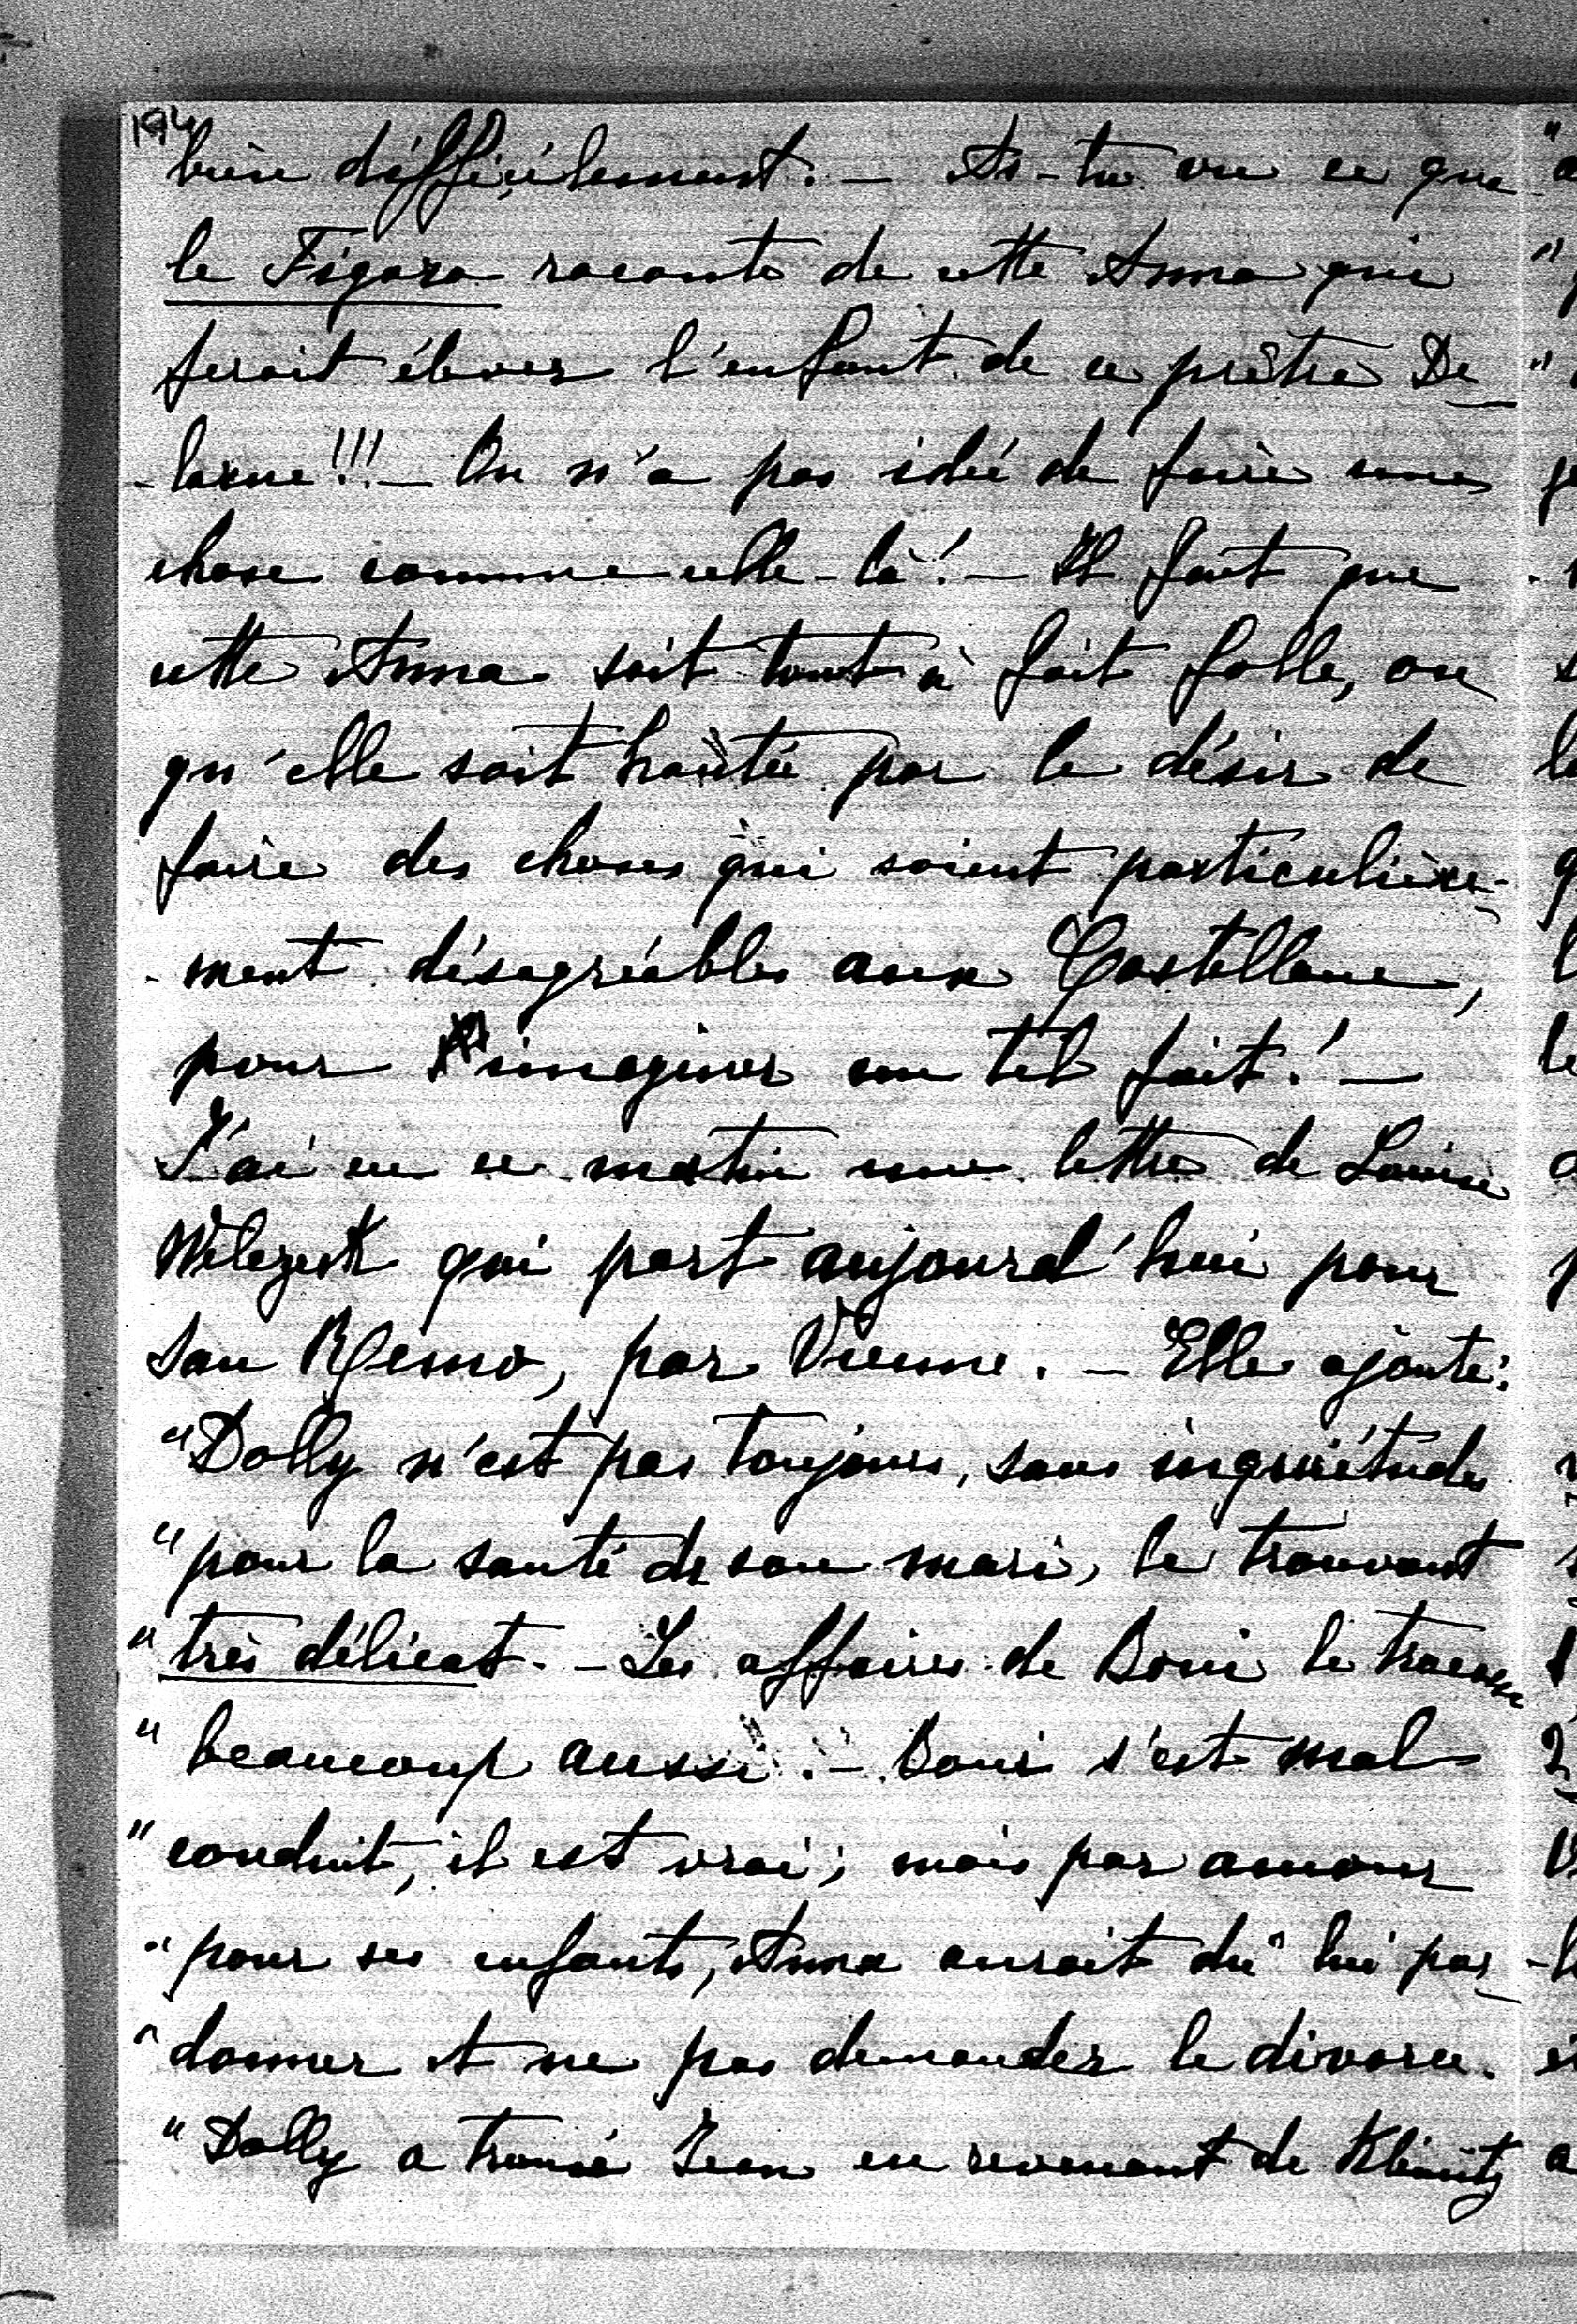 194
bien difficilement. — As-tu vu ce que
le Figaro raconte de cette Anna qui
ferait élever l'enfant de ce prêtre De
-larue!!! — On n'a pas idée de faire une
chose comme celle-là! — Il faut que
cette Anna soit tout à fait folle, ou
qu'elle soit hantée par le désir de
faire des choses qui soient particulière-
-ment désagréables aux Castellane,
pour imaginer un tel fait! —
J'ai eu ce matin une lettre de Louise
Wilczek qui part aujourd'hui pour
San Remo, par Vienne. — Elle ajoute:
"Dolly n'est pas toujours, sans inquiétudes
"pour la santé de son mari, le trouvant
"très délicat. — Les affaires de Boni le tracasse
"beaucoup aussi. — Boni s'est mal
"conduit, il est vrai; mais par amour
"pour ses enfants, Anna aurait dû lui par
"donner et ne pas demander le divorce.
"Dolly a trouvé Jean en revenant de